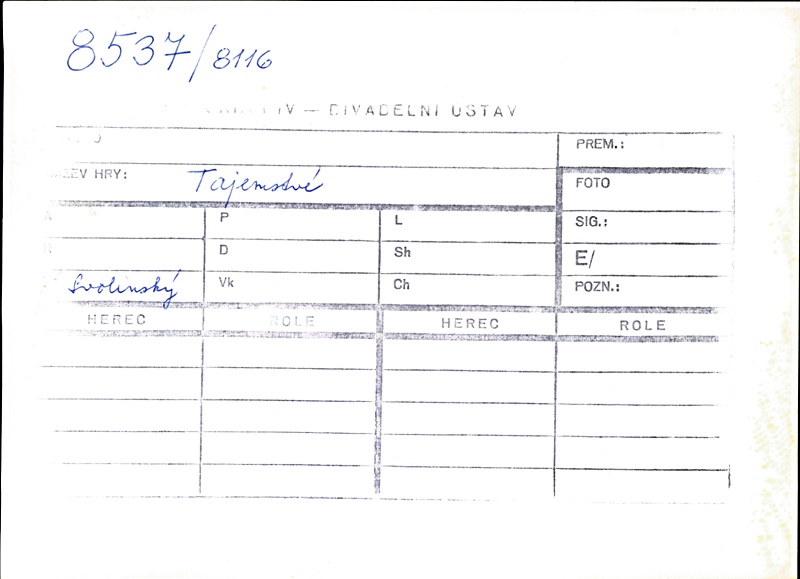 8537/8116
IV — DIVADELNÍ ÚSTAV
PREM.:
ZEV HRY: Tajemství
FOTO
P L SIG.:
D Sh E/
Svolinský Vk Ch POZN.:
HEREC ROLE HEREC ROLE